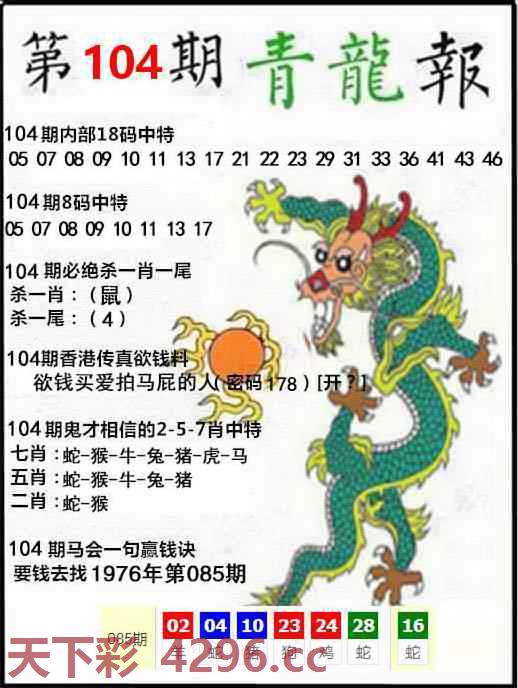 第104期 青龍報
104期内部18码中特
05 07 08 09 10 11 13 17 21 22 23 29 31 33 36 41 43 46
104期8码中特
05 07 08 09 10 11 13 17
104期必绝杀一肖一尾
杀一肖：（鼠）
杀一尾：（4）
104期香港传真欲钱料
欲钱买爱拍马屁的人(密码178）[开？]
104期鬼才相信的2-5-7肖中特
七肖：蛇-猴-牛-兔-猪-虎-马
五肖：蛇-猴-牛-兔-猪
二肖：蛇-猴
104期马会一句赢钱诀
要钱去找1976年第085期
085期 02 04 10 23 24 28 16
羊 蛇 猪 狗 鸡 蛇 蛇
天下彩 4296.cc